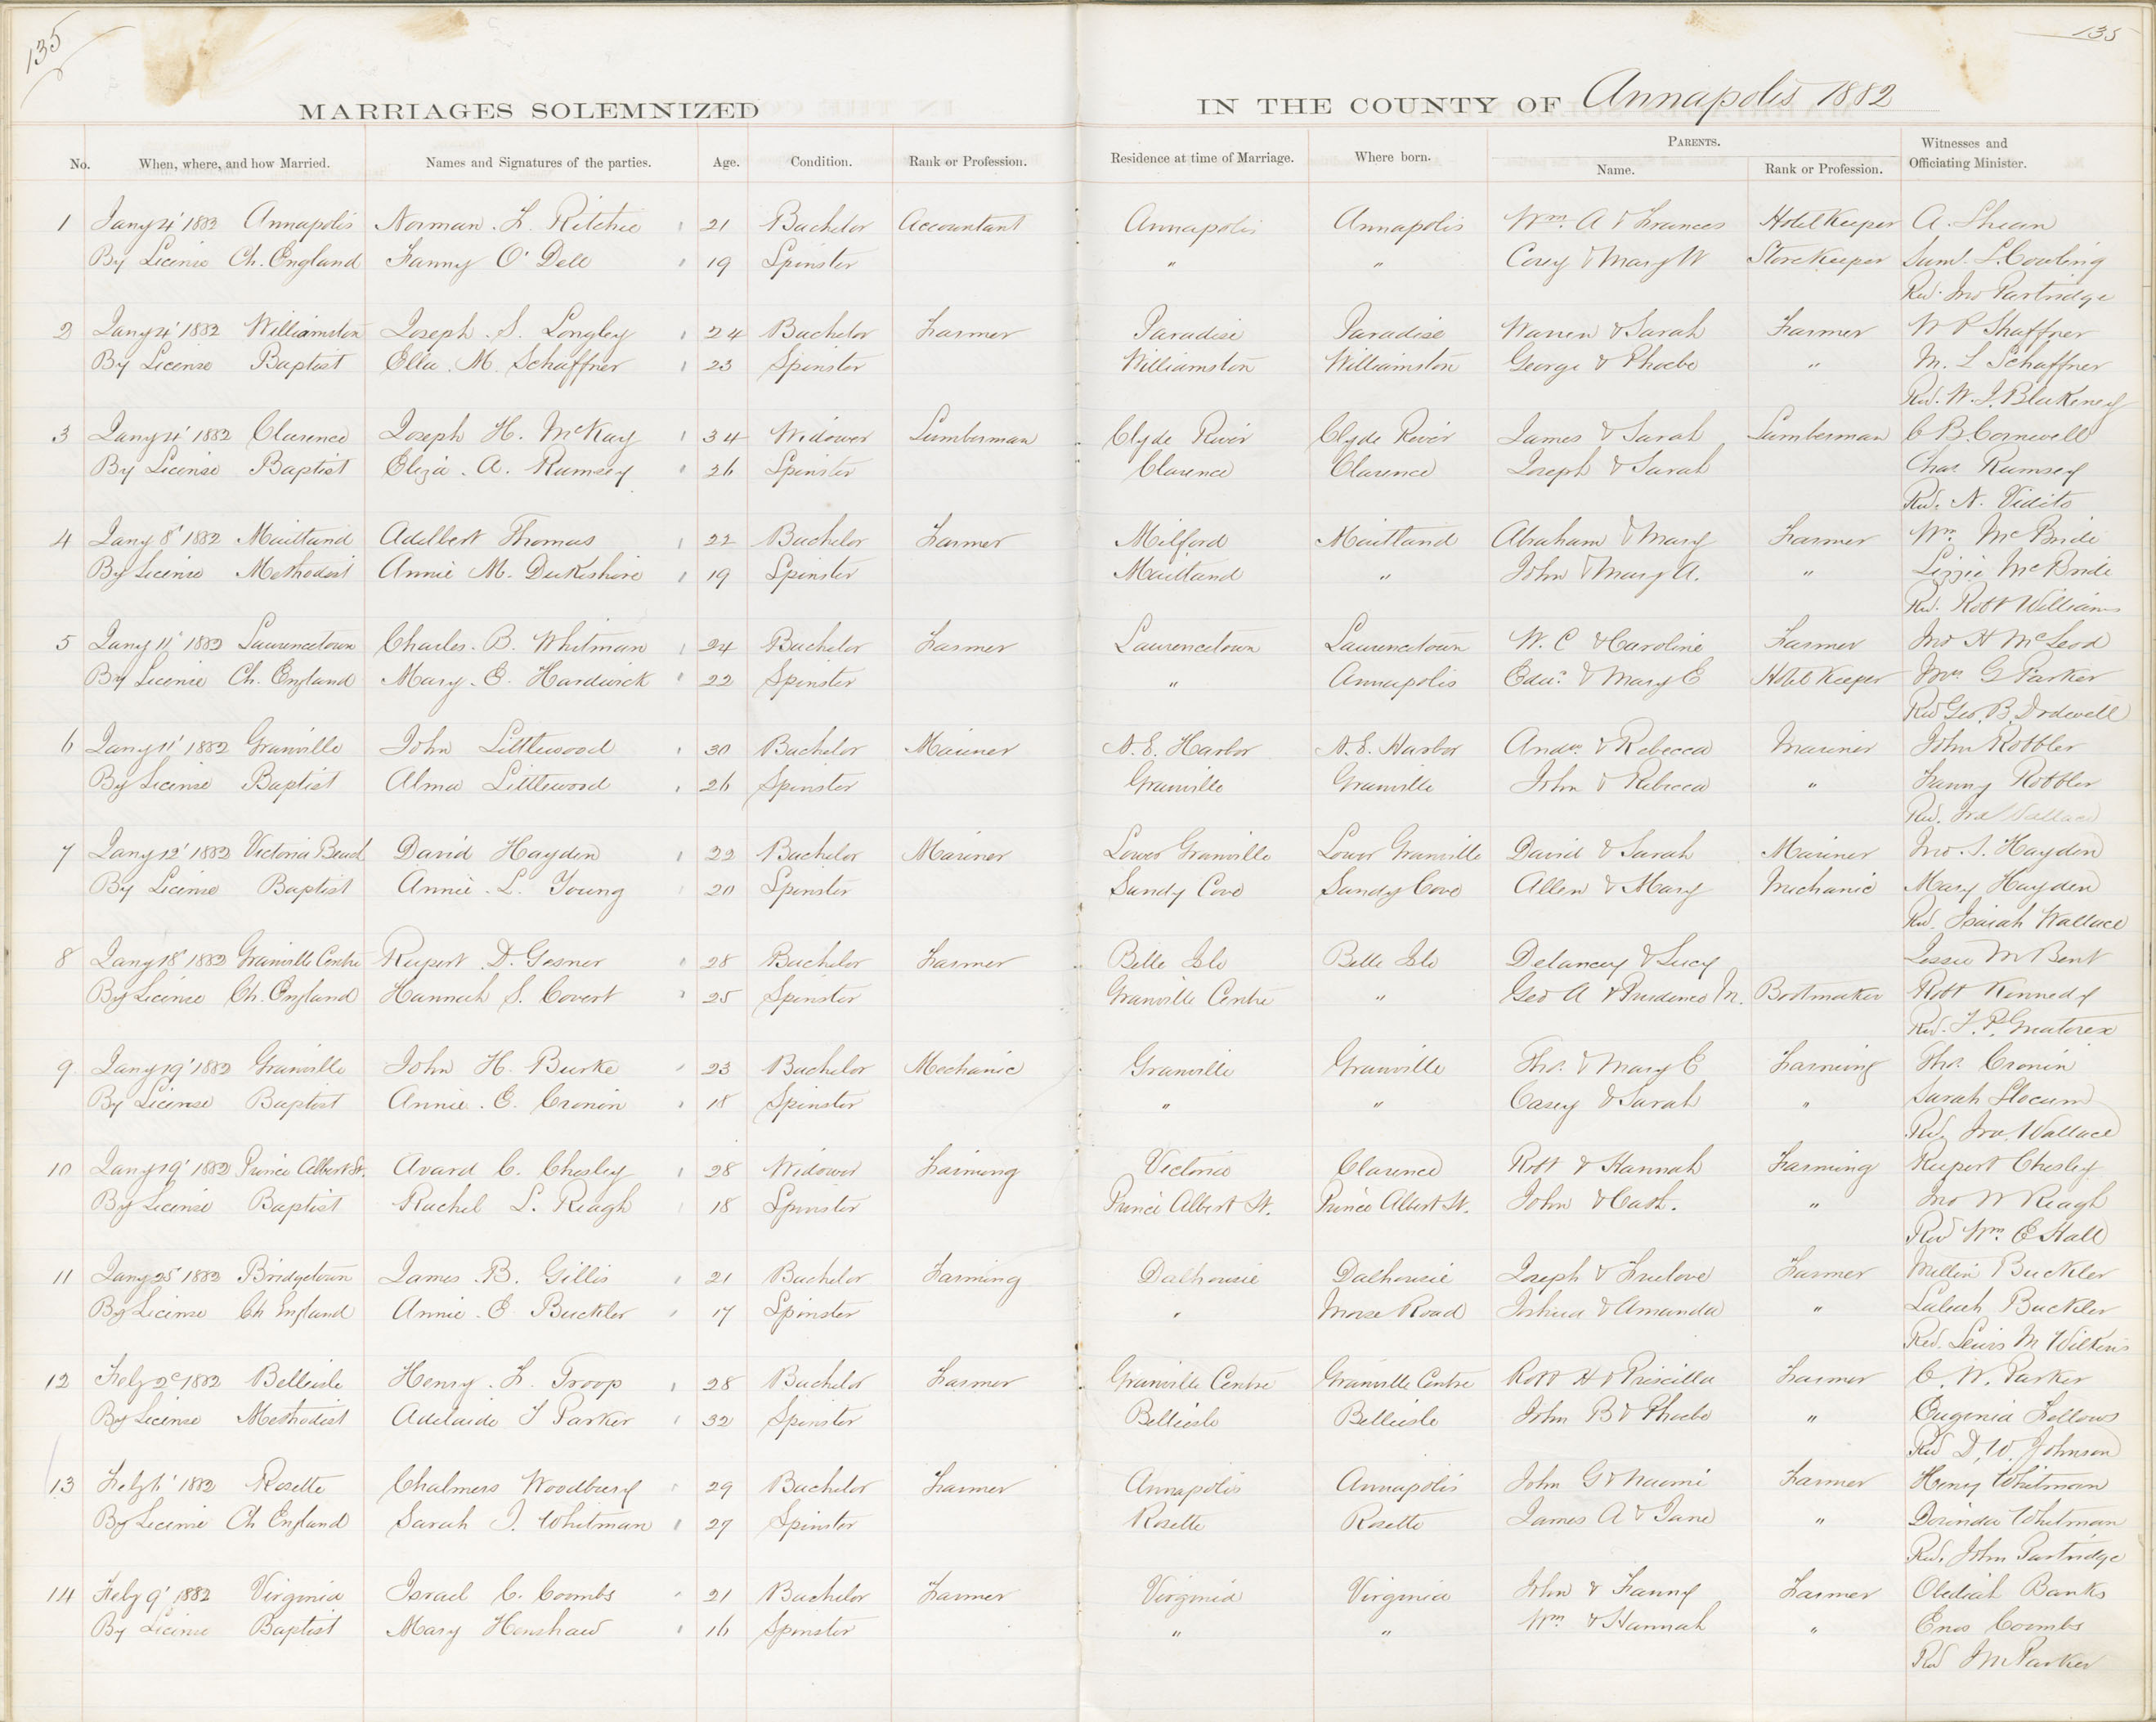 135
135
MARRIAGES SOLEMNIZED IN THE COUNTY OF Annapolis 1882
No. When, where, and how Married. Names and Signatures of the parties. Age. Condition. Rank or Profession. Residence at time of Marriage. Where born. PARENTS. Name. Rank or Profession. Witnesses and Officiating Minister.
1 Jany 4' 1882 Annapolis Norman. L. Ritchie 21 Bachelor Accountant Annapolis Annapolis Wm. A & Frances Hotel Keeper A. Shean
By License Ch. England Fanny O'Dell 19 Spinster " " Corey & Mary W Store Keeper Saml. L. Cowling
Rev. Jno Partridge
2 Jany 4' 1882 Williamston Joseph. S. Longley 24 Bachelor Farmer Paradise Paradise Warren & Sarah Farmer W P Shaffner
By License Baptist Ella. M. Schaffner 23 Spinster Williamston Williamston George & Phoebe " M. L Schaffner
Rev. W. J. Blakeney
3 Jany 4' 1882 Clarence Joseph H. McKay 34 Widower Lumberman Clyde River Clyde River James & Sarah Lumberman C B. Cornwell
By License Baptist Eliza. A. Rumsey 26 Spinster Clarence Clarence Joseph & Sarah Chas Rumsey
Rev. N. Vidito
4 Jany 8' 1882 Maitland Adelbert Thomas 22 Bachelor Farmer Milford Maitland Abraham & Mary Farmer Wm. McBride
By License Methodist Annie M. Dukeshire 19 Spinster Maitland " John & Mary A. " Lizzie McBride
Rev. Robt Williams
5 Jany 11' 1882 Laurencetown Charles. B. Whitman 24 Bachelor Farmer Laurencetown Laurencetown W. C & Caroline Farmer Jno H McLeod
By License Ch. England Mary. E. Hardwick 22 Spinster " Annapolis Edw. & Mary E Hotel Keeper G Parker
Rev Geo. B. Dodwell
6 Jany 11' 1882 Granville John Littlewood 30 Bachelor Mariner N. E. Harbor N. E. Harbor Andw. & Rebecca Mariner John Robbler
By License Baptist Alma Littlewood 26 Spinster Granville Granville John & Rebecca " Fanny Robbler
Rev. Wallace
7 Jany 12' 1882 Victoria Beach David Hayden 22 Bachelor Mariner Lower Granville Lower Granville David & Sarah Mariner Jno. S. Hayden
By License Baptist Annie. L. Young 20 Spinster Sandy Cove Sandy Cove Allen & Mary Mechanic Mary Hayden
Rev. Isaiah Wallace
8 Jany 18' 1882 Granville Centre Rupert. D. Gesner 28 Bachelor Farmer Belle Isle Belle Isle Delancey & Lucy Jessie M Bent
By License Ch. England Hannah S. Covert 25 Spinster Granville Centre " Geo A & Prudence M. Bootmaker Robt Kennedy
Rev. F. P. Greatorex
9 Jany 19' 1882 Granville John H. Burke 23 Bachelor Mechanic Granville Granville Thos. & Mary E Farming Thos. Cronin
By License Baptist Annie. E. Cronin 18 Spinster " " Casey & Sarah " Sarah Slocum
Rev. Wallace
10 Jany 19' 1882 Prince Albert St. Avard C. Chesley 28 Widower Farming Victoria Clarence Robt & Hannah Farming Rupert Chesley
By License Baptist Rachel L. Reagh 18 Spinster Prince Albert St. Prince Albert St. John & Cath. " Jno W Reagh
Rev Wm. E Hall
11 Jany 25' 1882 Bridgetown James. B. Gillis 21 Bachelor Farming Dalhousie Dalhousie Joseph & Freelove Farmer Buckler
By License Ch England Annie. E Buckler 17 Spinster " Morse Road Joshua & Amanda " Buckler
Rev. Lewis M Wilkins
12 Feby 2d 1882 Belleisle Henry. L. Troop 28 Bachelor Farmer Granville Centre Granville Centre Robt H & Priscilla Farmer C. W. Parker
By License Methodist Adelaide T Parker 32 Spinster Belleisle Belleisle John B & Phoebe " Eugenia Fellows
Rev D. W. Johnson
13 Feby 1' 1882 Rosette Chalmers Woodbury 29 Bachelor Farmer Annapolis Annapolis John G & Naomi Farmer Henry Whitman
By License Ch England Sarah J. Whitman 27 Spinster Rosette Rosette James A & Jane " Dorinda Whitman
Rev. John Partridge
14 Feby 9' 1882 Virginia Israel C. Coombs 21 Bachelor Farmer Virginia Virginia John & Fanny Farmer Obediah Banks
By License Baptist Mary Henshaw 16 Spinster " " Wm & Hannah " Enos Coombs
Rev Parker